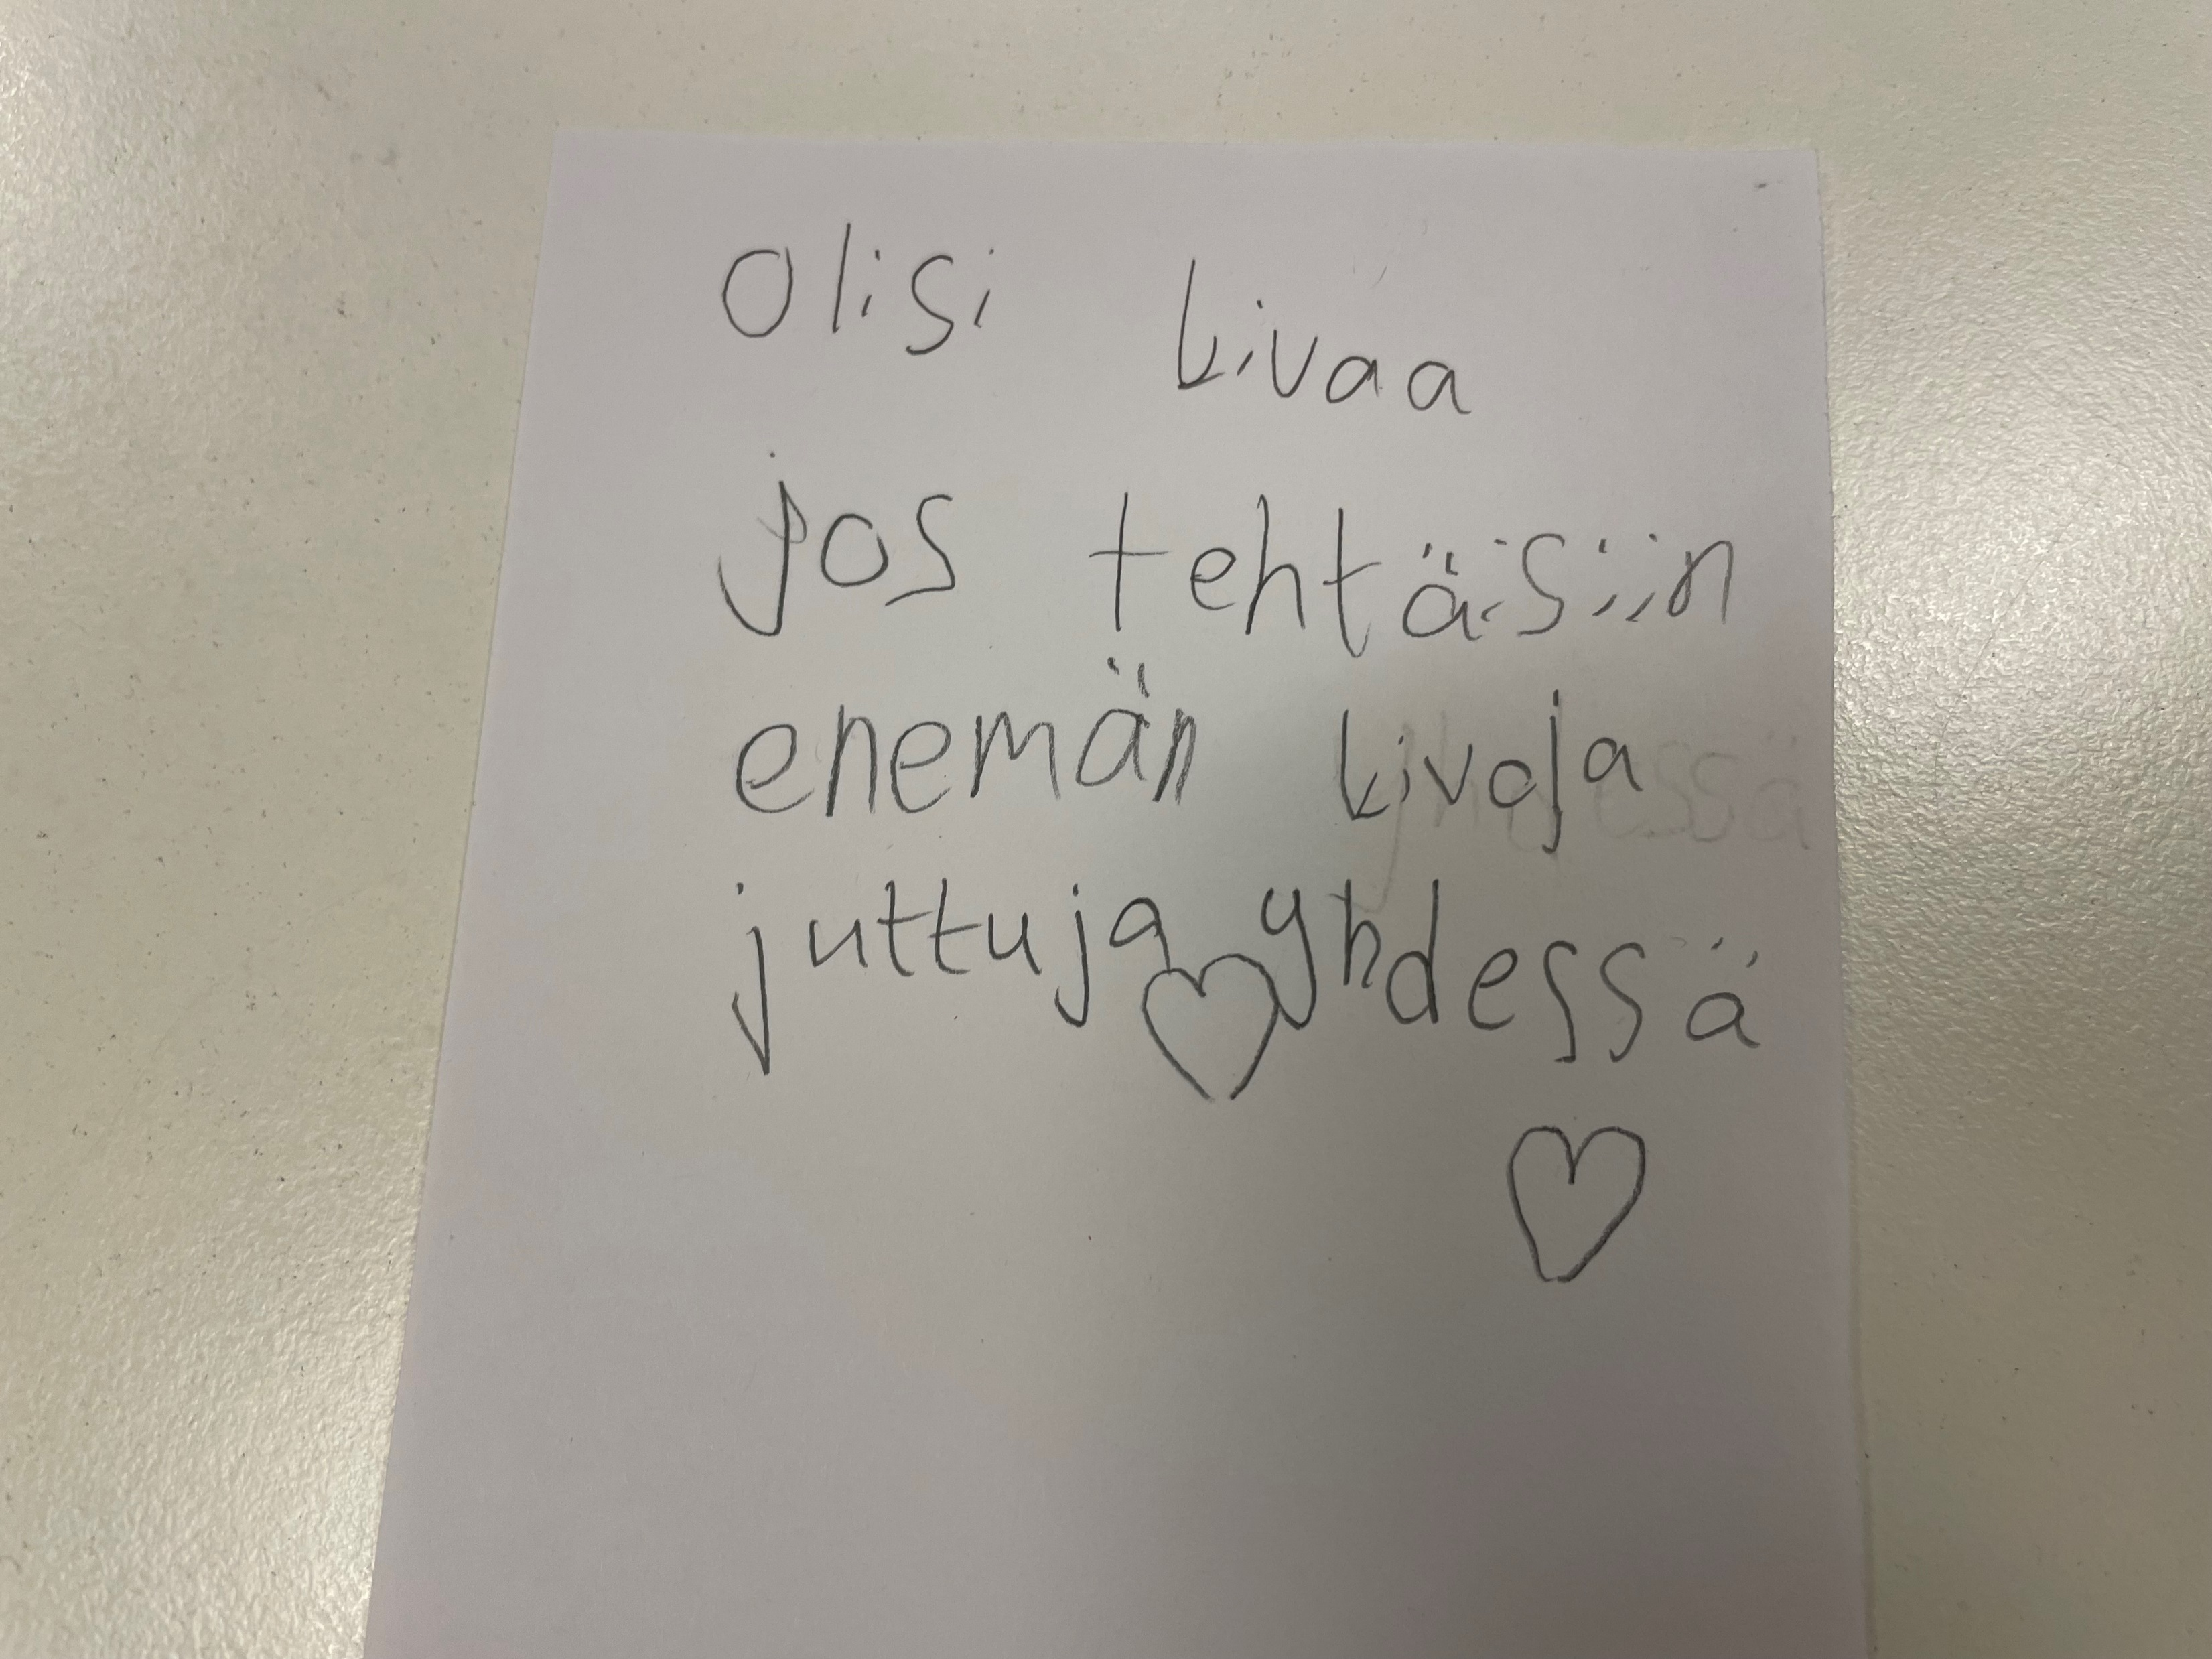 Olisi kivaa
jos tehtäisiin
enemän kivoja
juttuja yhdessä